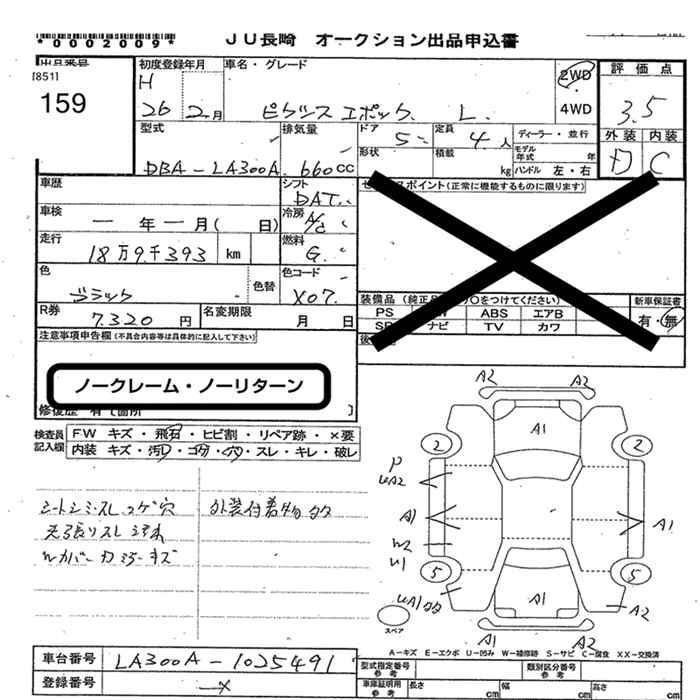 *0002009*
JU長崎 オークション出品申込書
出品番号
[851]
159
初度登録年月
H
26 2月
車名・グレード
ピクシス エポック. L.
2WD
4WD
評価点
3.5
外装 内装
D C
型式
DBA-LA300A.
排気量
660cc
ドア
5
形状
定員
4人
積載
kg
ディーラー・並行
モデル年式 年
ハンドル 左・右
車歴
シフト
DAT.
車検
ー年ー月( 日)
冷房
A/C
走行
18万9千393 km
燃料
G.
色
ブラック
色替
色コード
X07.
R券
7.320円
名変期限
月 日
セールスポイント(正常に機能するものに限ります)
装備品(純正品に○をつけてください)
新車保証書
PS ABS エアB
ナビ TV カワ
有・無
注意事項申告欄(不具合内容等は具体的に記入して下さい)
ノークレーム・ノーリターン
修復歴 有(箇所 )
検査員記入欄
FW キズ・飛石・ヒビ割・リペア跡・×要
内装 キズ・汚レ・コゲ・穴・スレ・キレ・破レ
シートシミ・スレ コゲ穴
天張リスレ
Wカバー カラーキズ
外装付着物
A2 A2
A1
2 2
P
UA2
A1 A1
W2
U1
5 5
UA1
A1
A2
A1 A2
スペア
A-キズ E-エクボ U-凹み W-補修跡 S-サビ C-腐食 XX-交換済
車台番号
LA300A-1025491
登録番号
型式指定番号
参考
類別区分番号
参考
車庫証明用
参考
長さ cm
幅 cm
高さ cm